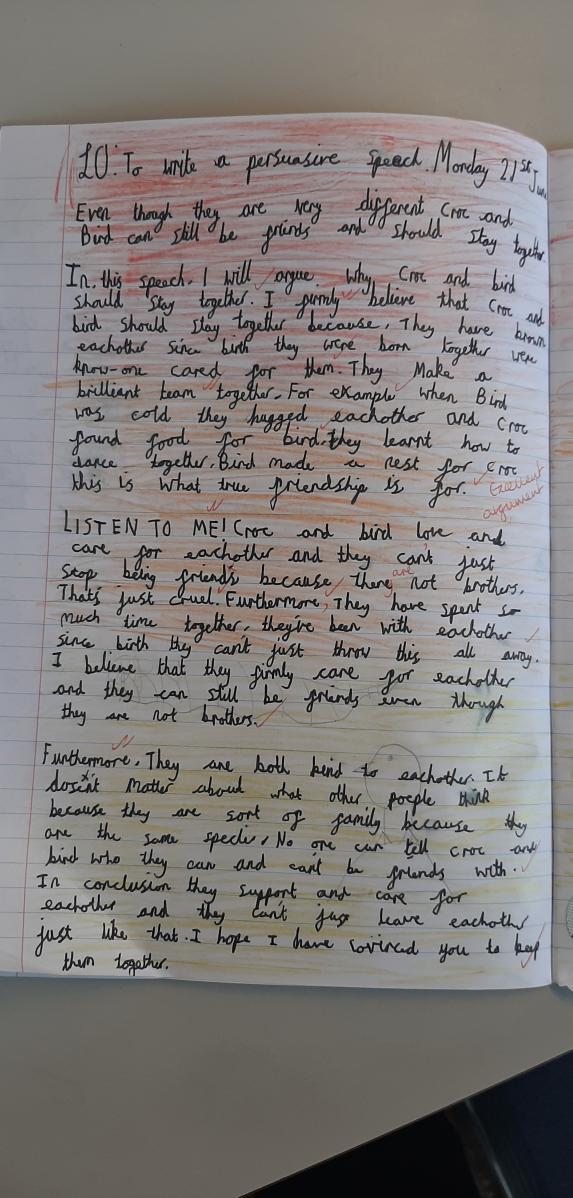 LO: To write a persuasive speech. Monday 21st June
Even though they are very different Croc and
Bird can still be friends and should stay together
In, this speech, I will argue why Croc and bird
should stay together. I firmly believe that Croc and
bird should stay together because, They have known
eachother since birth they were born together were
know-one cared for them. They Make a
brilliant team together. For example when Bird
was cold they hugged eachother and Croc
found food for bird. they learnt how to
dance together. Bird made a nest for Croc
this is what true friendship is for. Excellent
argument
LISTEN TO ME! Croc and bird love and
care for eachother and they can't just
stop being friends because there are not brothers.
That's just cruel. Furthermore, They have spent so
much time together, they're been with eachother
since birth they can't just throw this all away.
I believe that they firmly care for eachother
and they can still be friends even though
they are not brothers.
Furthermore, They are both kind to eachother. It
dosen't Matter about what other poeple think
because they are sort of family because they
are the same specie, No one can tell croc and
bird who they can and can't be friends with.
In conclusion they support and care for
eachother and they can't just leave eachother
just like that. I hope I have covinced you to keep
them together.